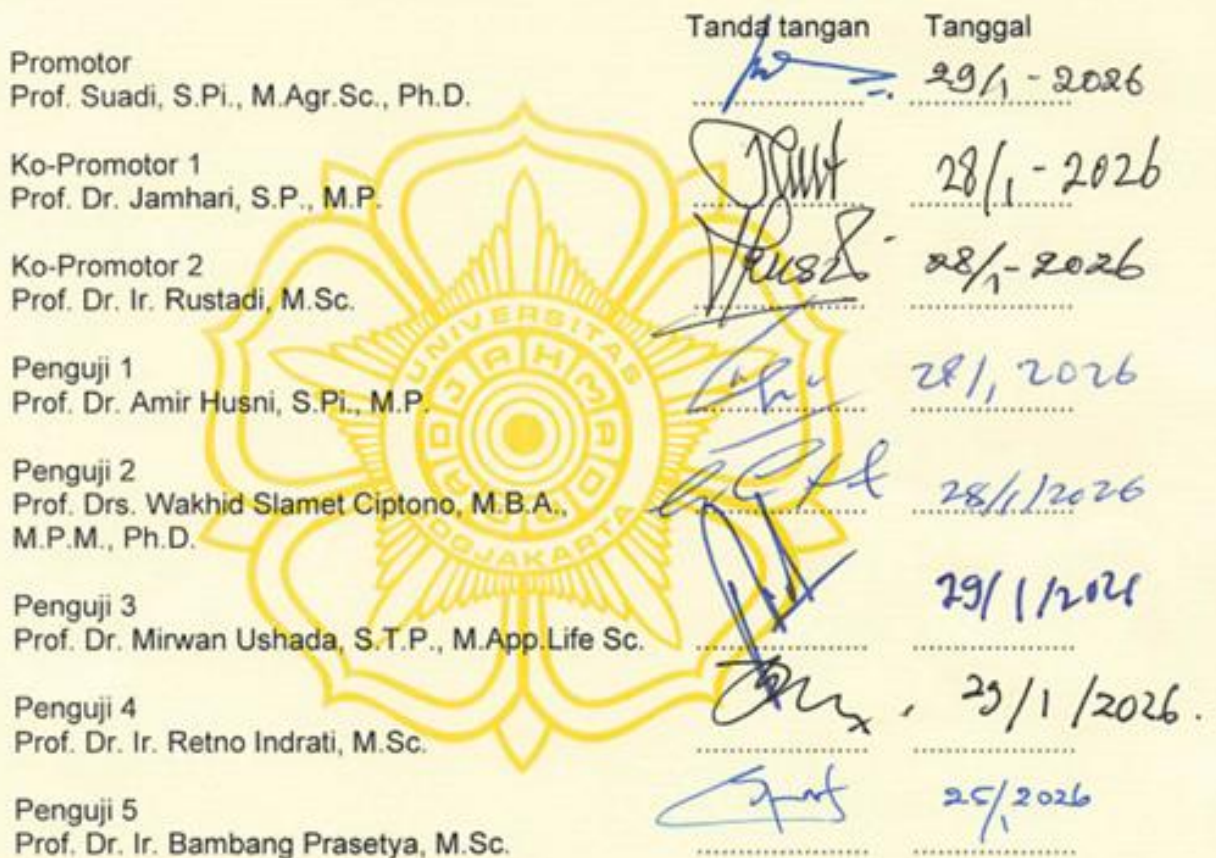 Tanda tangan Tanggal
Promotor
Prof. Suadi, S.Pi., M.Agr.Sc., Ph.D. 29/1 - 2026
Ko-Promotor 1
Prof. Dr. Jamhari, S.P., M.P. 28/1 - 2026
Ko-Promotor 2
Prof. Dr. Ir. Rustadi, M.Sc. 28/1 - 2026
Penguji 1
Prof. Dr. Amir Husni, S.Pi., M.P. 28/1, 2026
Penguji 2
Prof. Drs. Wakhid Slamet Ciptono, M.B.A., 28/1/2026
M.P.M., Ph.D.
Penguji 3
Prof. Dr. Mirwan Ushada, S.T.P., M.App.Life Sc. 29/1/2026
Penguji 4
Prof. Dr. Ir. Retno Indrati, M.Sc. 29/1/2026.
Penguji 5
Prof. Dr. Ir. Bambang Prasetya, M.Sc.
UNIVERSITAS
GADJAH MADA